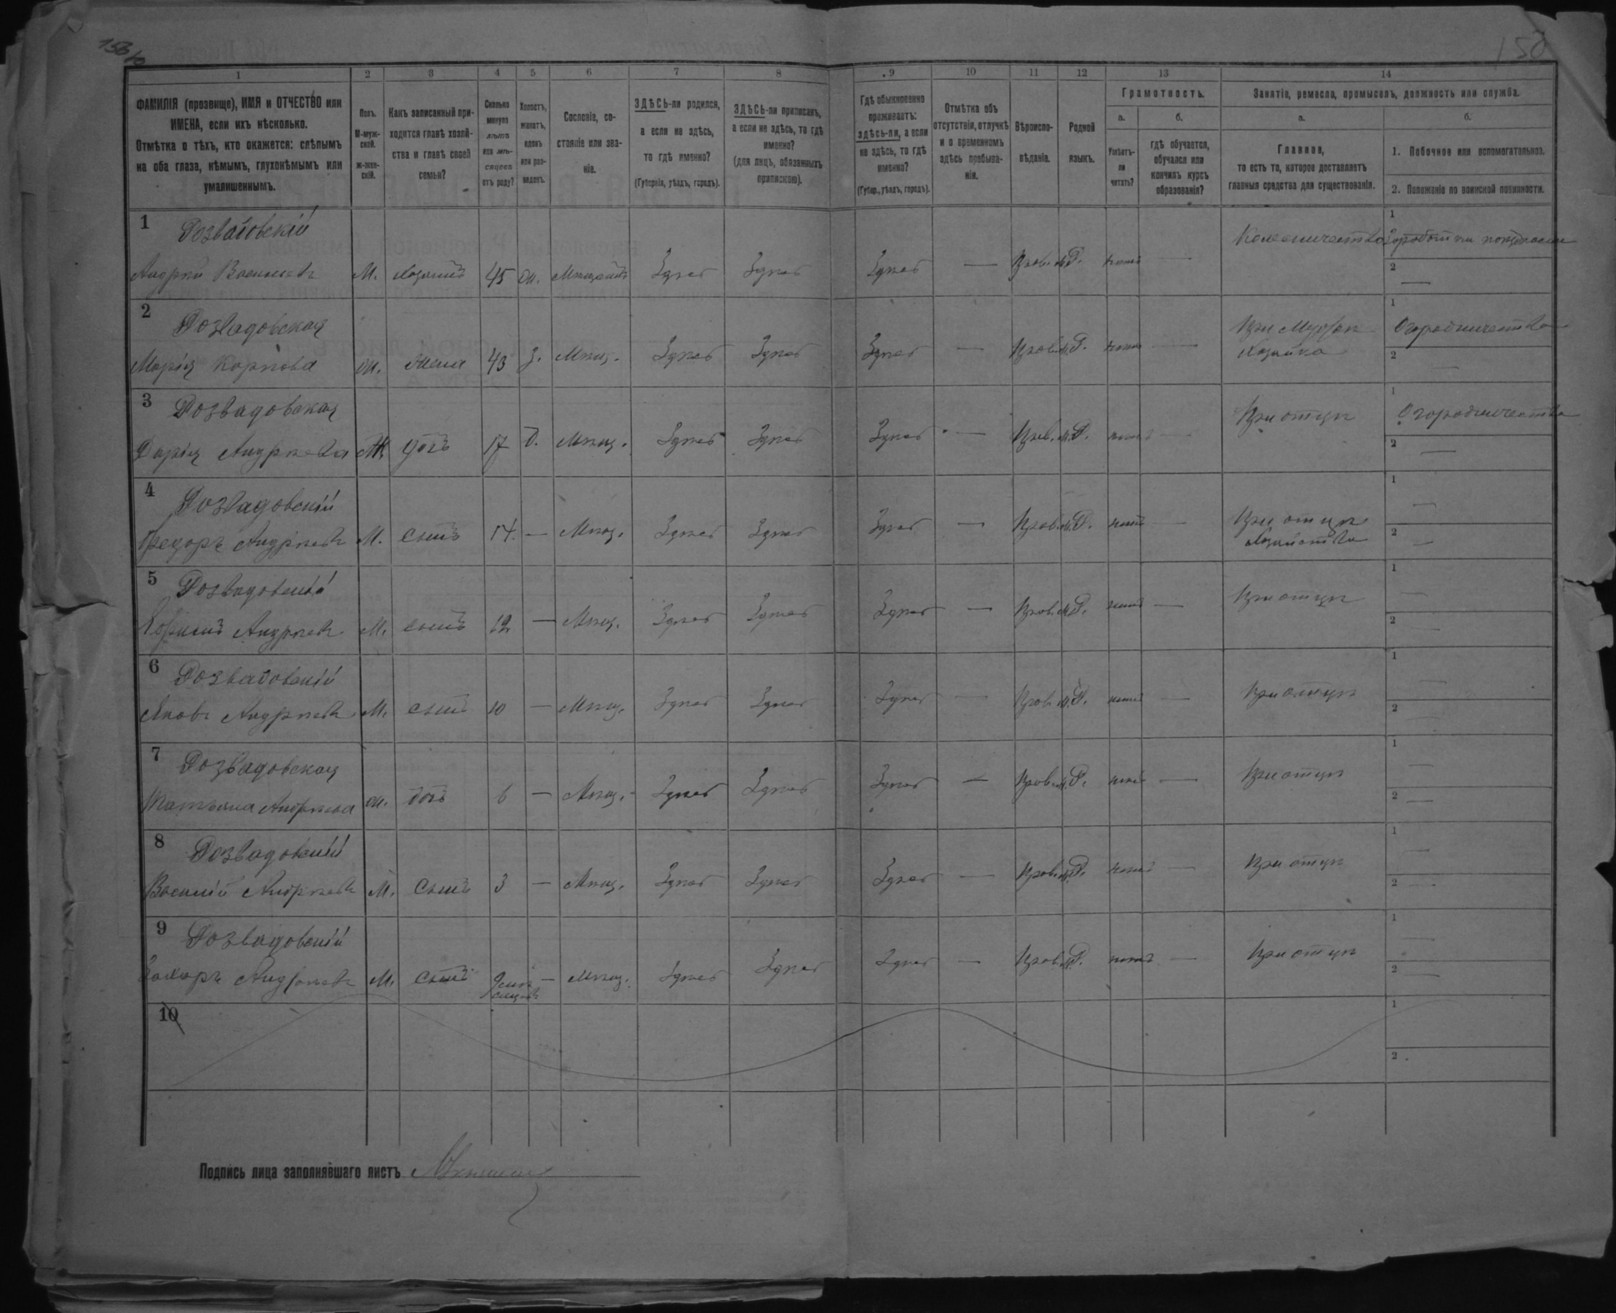 150
1 2 3 4 5 6 7 8 9 10 11 12 13 14
ФАМИЛІЯ (прозвище), ИМЯ и ОТЧЕСТВО или
ИМЕНА, если ихъ нѣсколько.
Отмѣтка о тѣхъ, кто окажется: слѣпымъ
на оба глаза, нѣмымъ, глухонѣмымъ или
умалишеннымъ.
Полъ.
М-муж-
ской.
ж-жен-
скій.
Какъ записанный при-
ходится главѣ хозяй-
ства и главѣ своей
семьи?
Сколько
минуло
лѣтъ
или мѣ-
сяцевъ
отъ роду?
Холостъ,
женатъ,
вдовъ
или раз-
веденъ.
Сословіе, со-
стояніе или зва-
ніе.
ЗДѢСЬ-ли родился,
а если не здѣсь,
то гдѣ именно?
(Губернія, уѣздъ, городъ).
ЗДѢСЬ-ли приписанъ,
а если не здѣсь, то гдѣ
именно?
(для лицъ, обязанныхъ
припискою).
Гдѣ обыкновенно
проживаетъ:
здѣсь-ли, а если
не здѣсь, то гдѣ
именно?
(Губер., уѣздъ, городъ).
Отмѣтка объ
отсутствіи, отлучкѣ
и о временномъ
здѣсь пребыва-
ніи.
Вѣроиспо-
вѣданіе.
Родной
языкъ.
Грамотность.
а.
Умѣетъ-
ли
читать?
б.
гдѣ обучается,
обучался или
кончилъ курсъ
образованія?
Занятіе, ремесло, промыселъ, должность или служба.
а.
Главное,
то есть то, которое доставляетъ
главныя средства для существованія.
б.
1. Побочное или вспомогательное.
2. Положеніе по воинской повинности.
1 Дозвадовскій
Андрей Васильевъ М. хозяинъ 45 ж. Мѣщанинъ Здѣсь Здѣсь Здѣсь — Прав. М.Р. нѣтъ —
1
2 —
2 Дозвадовская
Марія Карпова ж. жена 43 з. Мѣщ. Здѣсь Здѣсь Здѣсь — Прав. М.Р. нѣтъ — При мужѣ
хозяйка
1 Огородничество
2 —
3 Дозвадовская
Дарія Андреева Ж дочь 17 д. Мѣщ. Здѣсь Здѣсь Здѣсь — Прав. М.Р. нѣтъ — При отцѣ
1 Огородничество
2 —
4 Дозвадовскій
Федоръ Андреевъ М. сынъ 14 — Мѣщ. Здѣсь Здѣсь Здѣсь — Прав. М.Р. нѣтъ — При отцѣ
1 —
2 —
5 Дозвадовскій
Андреевъ М. сынъ 12 — Мѣщ. Здѣсь Здѣсь Здѣсь — Прав. М.Р. нѣтъ — При отцѣ
1 —
2 —
6 Дозвадовскій
Яковъ Андреевъ М. сынъ 10 — Мѣщ. Здѣсь Здѣсь Здѣсь — Прав. М.Р. нѣтъ — При отцѣ
1 —
2 —
7 Дозвадовская
Татьяна Андреева ж. дочь 6 — Мѣщ. Здѣсь Здѣсь Здѣсь — Прав. М.Р. нѣтъ — При отцѣ
1 —
2 —
8 Дозвадовскій
Василій Андреевъ М. сынъ 3 — Мѣщ. Здѣсь Здѣсь Здѣсь — Прав. М.Р. нѣтъ — При отцѣ
1 —
2 —
9 Дозвадовскій
Захаръ Андреевъ М. сынъ — Мѣщ. Здѣсь Здѣсь Здѣсь — Прав. М.Р. нѣтъ — При отцѣ
1 —
2 —
10
1
2
Подпись лица заполнявшаго листъ